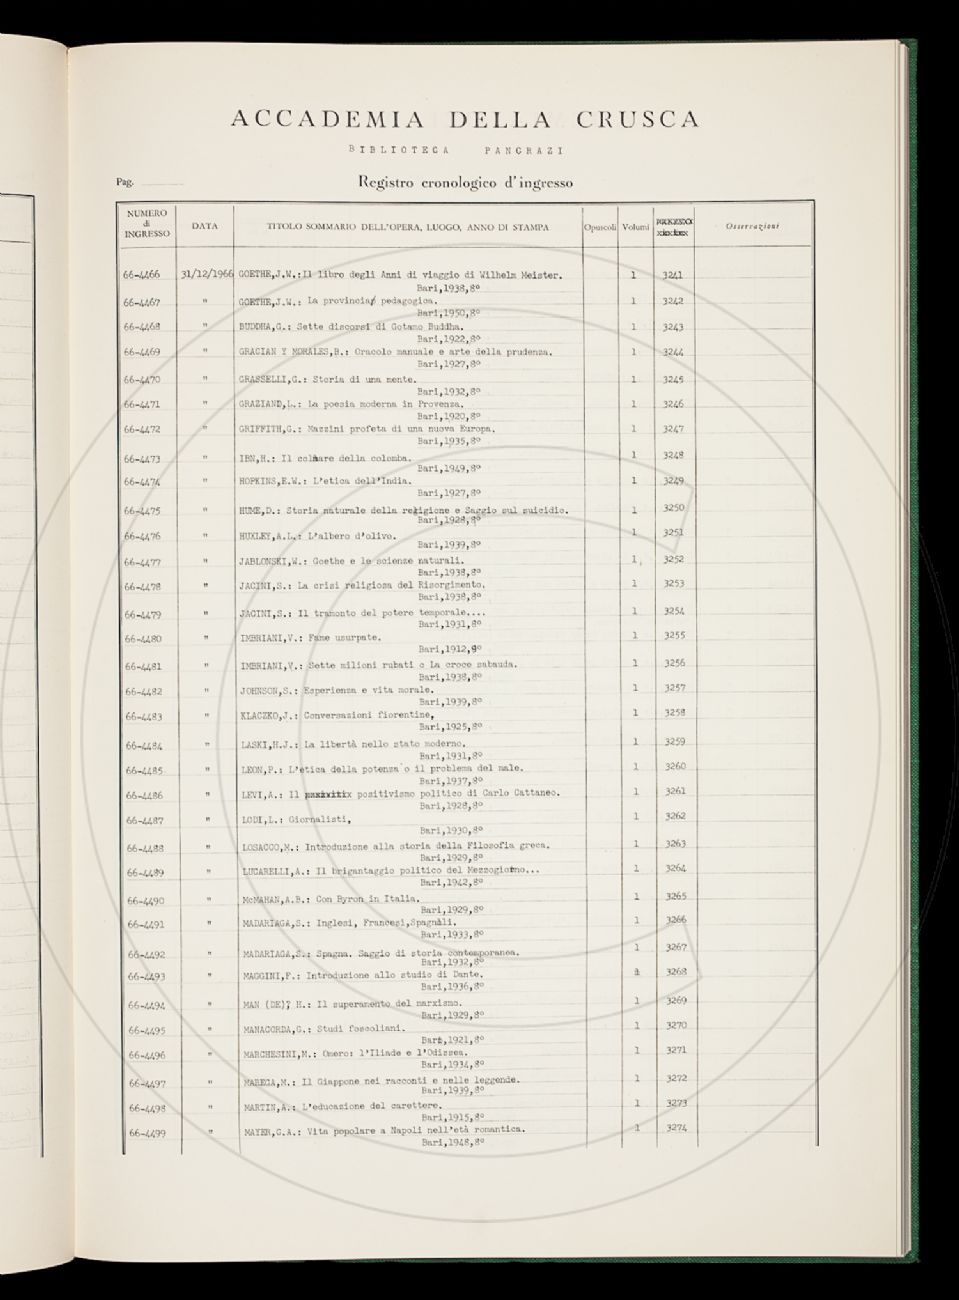 ACCADEMIA DELLA CRUSCA
BIBLIOTECA PANCRAZI
Pag.
Registro cronologico d'ingresso
NUMERO di INGRESSO DATA TITOLO SOMMARIO DELL'OPERA, LUOGO, ANNO DI STAMPA Opuscoli Volumi Osservazioni
66-4466 31/12/1966 GOETHE,J.W.:Il libro degli Anni di viaggio di Wilhelm Meister. 1 3241
Bari,1938,8º
66-4467 " GOETHE,J.W.: La provincia pedagogica. 1 3242
Bari,1950,8º
66-4468 " BUDDHA,G.: Sette discorsi di Gotamo Buddha. 1 3243
Bari,1922,8º
66-4469 " GRACIAN Y MORALES,B.: Oracolo manuale e arte della prudenza. 1 3244
Bari,1927,8º
66-4470 " GRASSELLI,G.: Storia di una mente. 1 3245
Bari,1932,8º
66-4471 " GRAZIAND,L.: La poesia moderna in Provenza. 1 3246
Bari,1920,8º
66-4472 " GRIFFITH,G.: Mazzini profeta di una nuova Europa. 1 3247
Bari,1935,8º
66-4473 " IBN,H.: Il collare della colomba. 1 3248
Bari,1949,8º
66-4474 " HOPKINS,E.W.: L'etica dell'India. 1 3249
Bari,1927,8º
66-4475 " HUME,D.: Storia naturale della religione e Saggio sul suicidio. 1 3250
Bari,1928,8º
66-4476 " HUXLEY,A.L.: L'albero d'olivo. 1 3251
Bari,1939,8º
66-4477 " JABLONSKI,W.: Goethe e le scienze naturali. 1 3252
Bari,1938,8º
66-4478 " JACINI,S.: La crisi religiosa del Risorgimento. 1 3253
Bari,1938,8º
66-4479 " JACINI,S.: Il tramonto del potere temporale.... 1 3254
Bari,1931,8º
66-4480 " IMBRIANI,V.: Fame usurpate. 1 3255
Bari,1912,8º
66-4481 " IMBRIANI,V.: Sette milioni rubati o La croce sabauda. 1 3256
Bari,1938,8º
66-4482 " JOHNSON,S.: Esperienza e vita morale. 1 3257
Bari,1939,8º
66-4483 " KLACZKO,J.: Conversazioni fiorentine, 1 3258
Bari,1925,8º
66-4484 " LASKI,H.J.: La libertà nello stato moderno. 1 3259
Bari,1931,8º
66-4485 " LEON,P.: L'etica della potenza o il problema del male. 1 3260
Bari,1937,8º
66-4486 " LEVI,A.: Il positivismo politico di Carlo Cattaneo. 1 3261
Bari,1928,8º
66-4487 " LODI,L.: Giornalisti, 1 3262
Bari,1930,8º
66-4488 " LOSACCO,M.: Introduzione alla storia della Filosofia greca. 1 3263
Bari,1929,8º
66-4489 " LUCARELLI,A.: Il brigantaggio politico del Mezzogiorno... 1 3264
Bari,1942,8º
66-4490 " McMAHAN,A.B.: Con Byron in Italia. 1 3265
Bari,1929,8º
66-4491 " MADARIAGA,S.: Inglesi, Francesi,Spagnoli. 1 3266
Bari,1933,8º
66-4492 " MADARIAGA,S.: Spagna. Saggio di storia contemporanea. 1 3267
Bari,1932,8º
66-4493 " MAGGINI,F.: Introduzione allo studio di Dante. 1 3268
Bari,1936,8º
66-4494 " MAN (DE), H.: Il superamento del marxismo. 1 3269
Bari,1929,8º
66-4495 " MANACORDA,G.: Studi foscoliani. 1 3270
Bari,1921,8º
66-4496 " MARCHESINI,M.: Omero: l'Iliade e l'Odissea. 1 3271
Bari,1934,8º
66-4497 " MAREGA,M.: Il Giappone nei racconti e nelle leggende. 1 3272
Bari,1939,8º
66-4498 " MARTIN,A.: L'educazione del carettere. 1 3273
Bari,1915,8º
66-4499 " MAYER,G.A.: Vita popolare a Napoli nell'età romantica. 1 3274
Bari,1948,8º